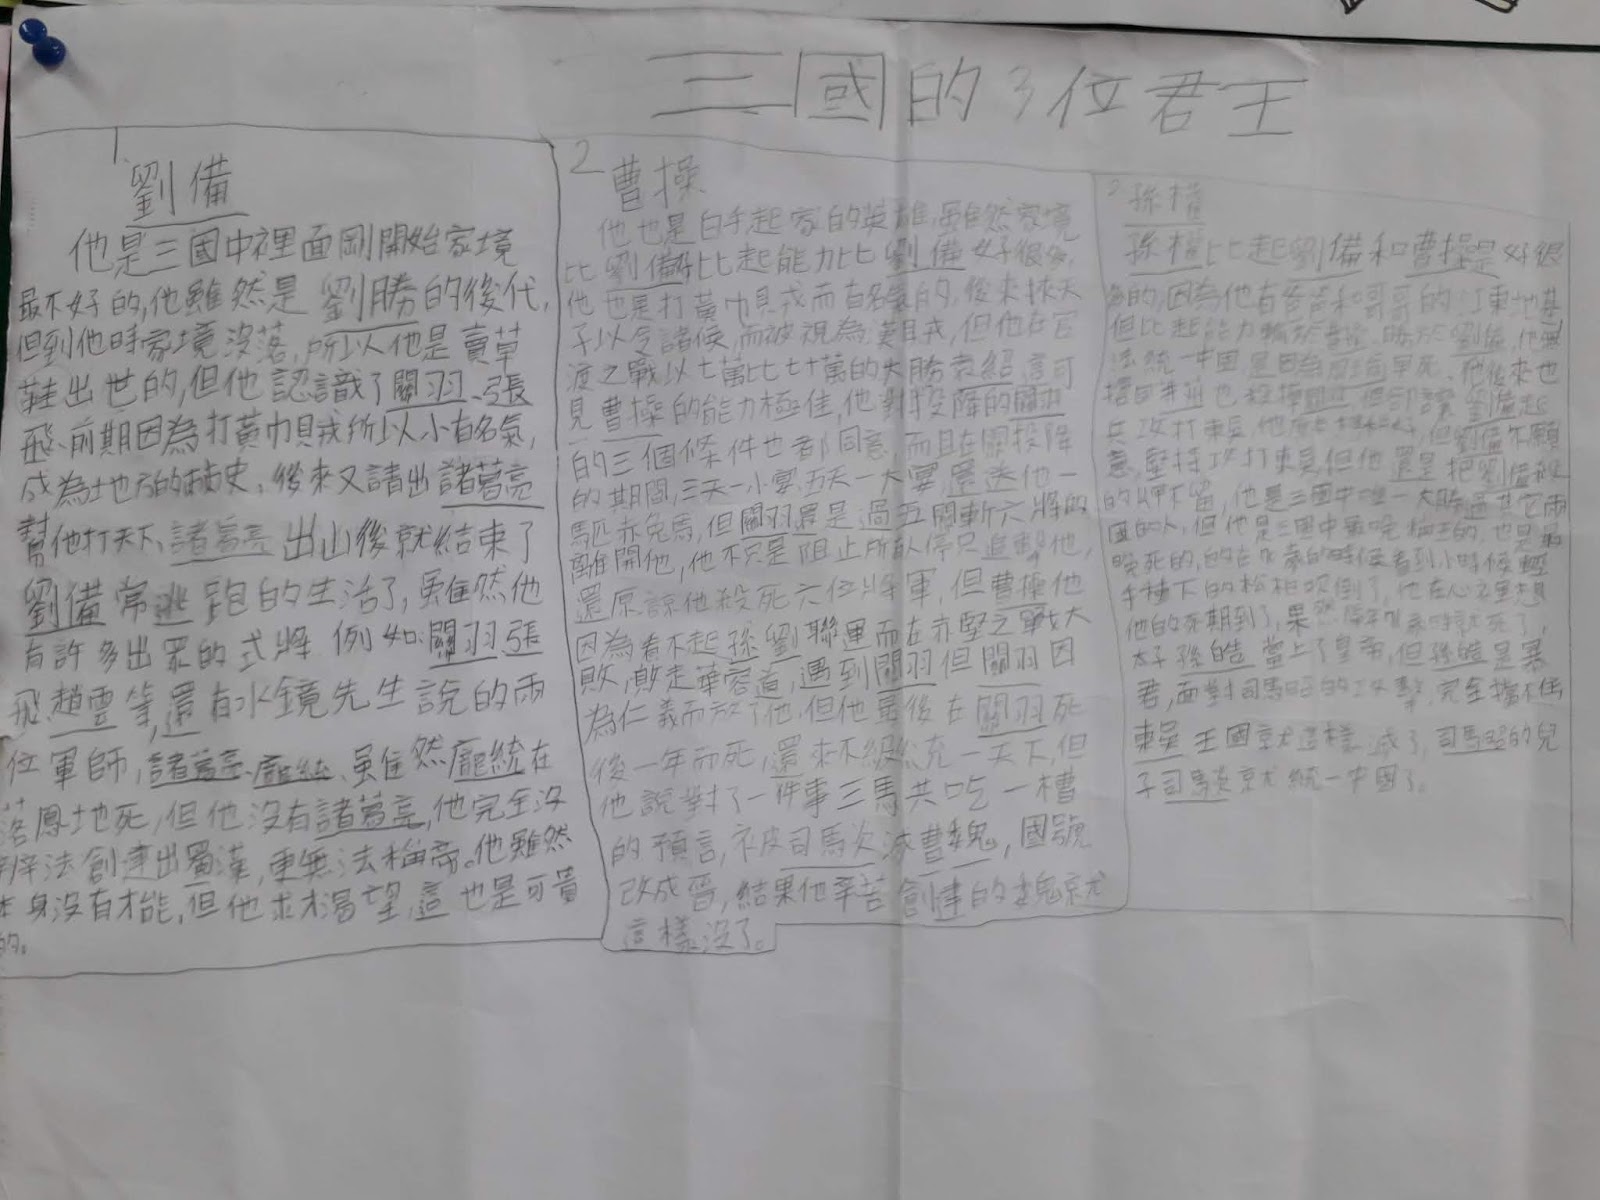 三國的3位君王
1.
劉備
他是三國中裡面剛開始家境
最不好的,他雖然是劉勝的後代,
但到他時家境沒落,所以他是賣草
鞋出世的,但他認識了關羽、張
飛、前期因為打黃巾賊所以小有名氣,
成為地方的刺史,後來又請出諸葛亮
幫他打天下,諸葛亮出山後就結束了
劉備常逃跑的生活了,雖然他
有許多出眾的式將 例如關羽張
飛趙雲等,還有水鏡先生說的兩
位軍師,諸葛亮、龐統、雖然龐統在
落鳳地死,但他沒有諸葛亮,他完全沒
辦法創建出蜀漢,更無法稱帝。他雖然
本身沒有才能,但他求才渴望,這也是可貴
的。
2
曹操
他也是白手起家的英雄,雖然家境
比劉備好比起能力比劉備好很多,
他也是打黃巾賊而有名氣的,後來挾天
子以令諸侯,而被視為漢賊,但他在官
渡之戰以七萬比七十萬的大勝袁紹這可
見曹操的能力極佳,他對投降的關羽
的三個條件也都同意,而且在關投降
的期間,三天一小宴,五天一大宴,還送他一
馬區赤兔馬,但關羽還是過五關斬六將的
離開他,他不只是阻止所有人停只追殺他,
還原諒他殺死六位將軍,但曹操他
因為看不起孫劉聯軍而在赤堅之戰大
敗,敗走華容道,遇到關羽但關羽因
為仁義而放了他,但他最後在關羽死
後一年而死,還來不級統一天下,但
他說對了一件事三馬共吃一槽
的預言,被司馬次滅曹魏,國號
改成晉,結果他辛苦創建的魏就
這樣沒了。
孫權
孫權比起劉備和曹操是好很
多的,因為他有爸爸和哥哥的江東地基
但比起能力輸於曹操、勝於劉備,他無
法統一中國,是因為早死、他後來也
共攻打東吳,但劉備不願
意,堅持攻打東吳,但他還是把劉備殺
的片甲不留,他是三國中唯一大勝過其它兩
國的人,但他是三國中最晚稱王的,也是最
晚死的,的時候看到小時候輕
手種下的松柏吹倒了,他在心之里想
他的死期到了,果然隔年就死了,
太子孫皓當上了皇帝,但孫皓是暴
君,面對司馬昭的攻擊,完全擋不住
東吳王國就這樣滅了,司馬昭的兒
子司馬炎就統一中國了。